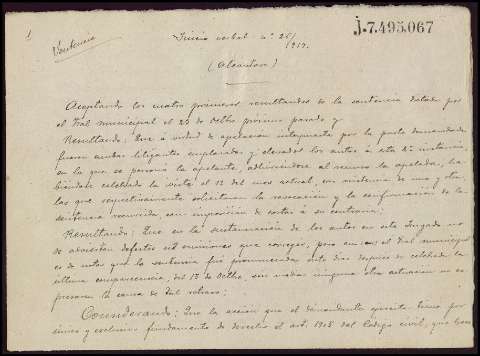 1
Sentencia
Juicio verbal nº 26/
1917.
j.7.495.067
(Alcantara)
Aceptando los cuatro primeros resultandos de la sentencia dictada por
el Tral municipal el 25 de Octbe próximo pasado y
Resultando: Que á virtud de apelación interpuesta por la parte demandada
fueron ambas litigantes emplazadas y elevados los autos á esta 2ª instancia,
en la que se personó la apelante, adhiriéndose al recurso la apelada, ha-
biéndose celebrado la vista el 12 del mes actual, con asistencia de una y otra,
las que respectivamente solicitaron la revocación y la confirmación de la
sentencia recurrida, con imposición de costas á su contraria;
Resultando: Que en la sustanciación de los autos en este Juzgado no
se advierten defectos ni omisiones que corregir, pero en el Tral municipal
es de notar que la sentencia fué pronunciada ocho días después de celebrada la
última comparecencia, del 17 de Octbe, sin mediar ninguna otra actuación ni ex-
presarse la causa de tal retraso;
Considerando: Que la acción que el demandante ejercita tiene por
único y exclusivo fundamento de derecho el artº 1908 del Código civil, que hace